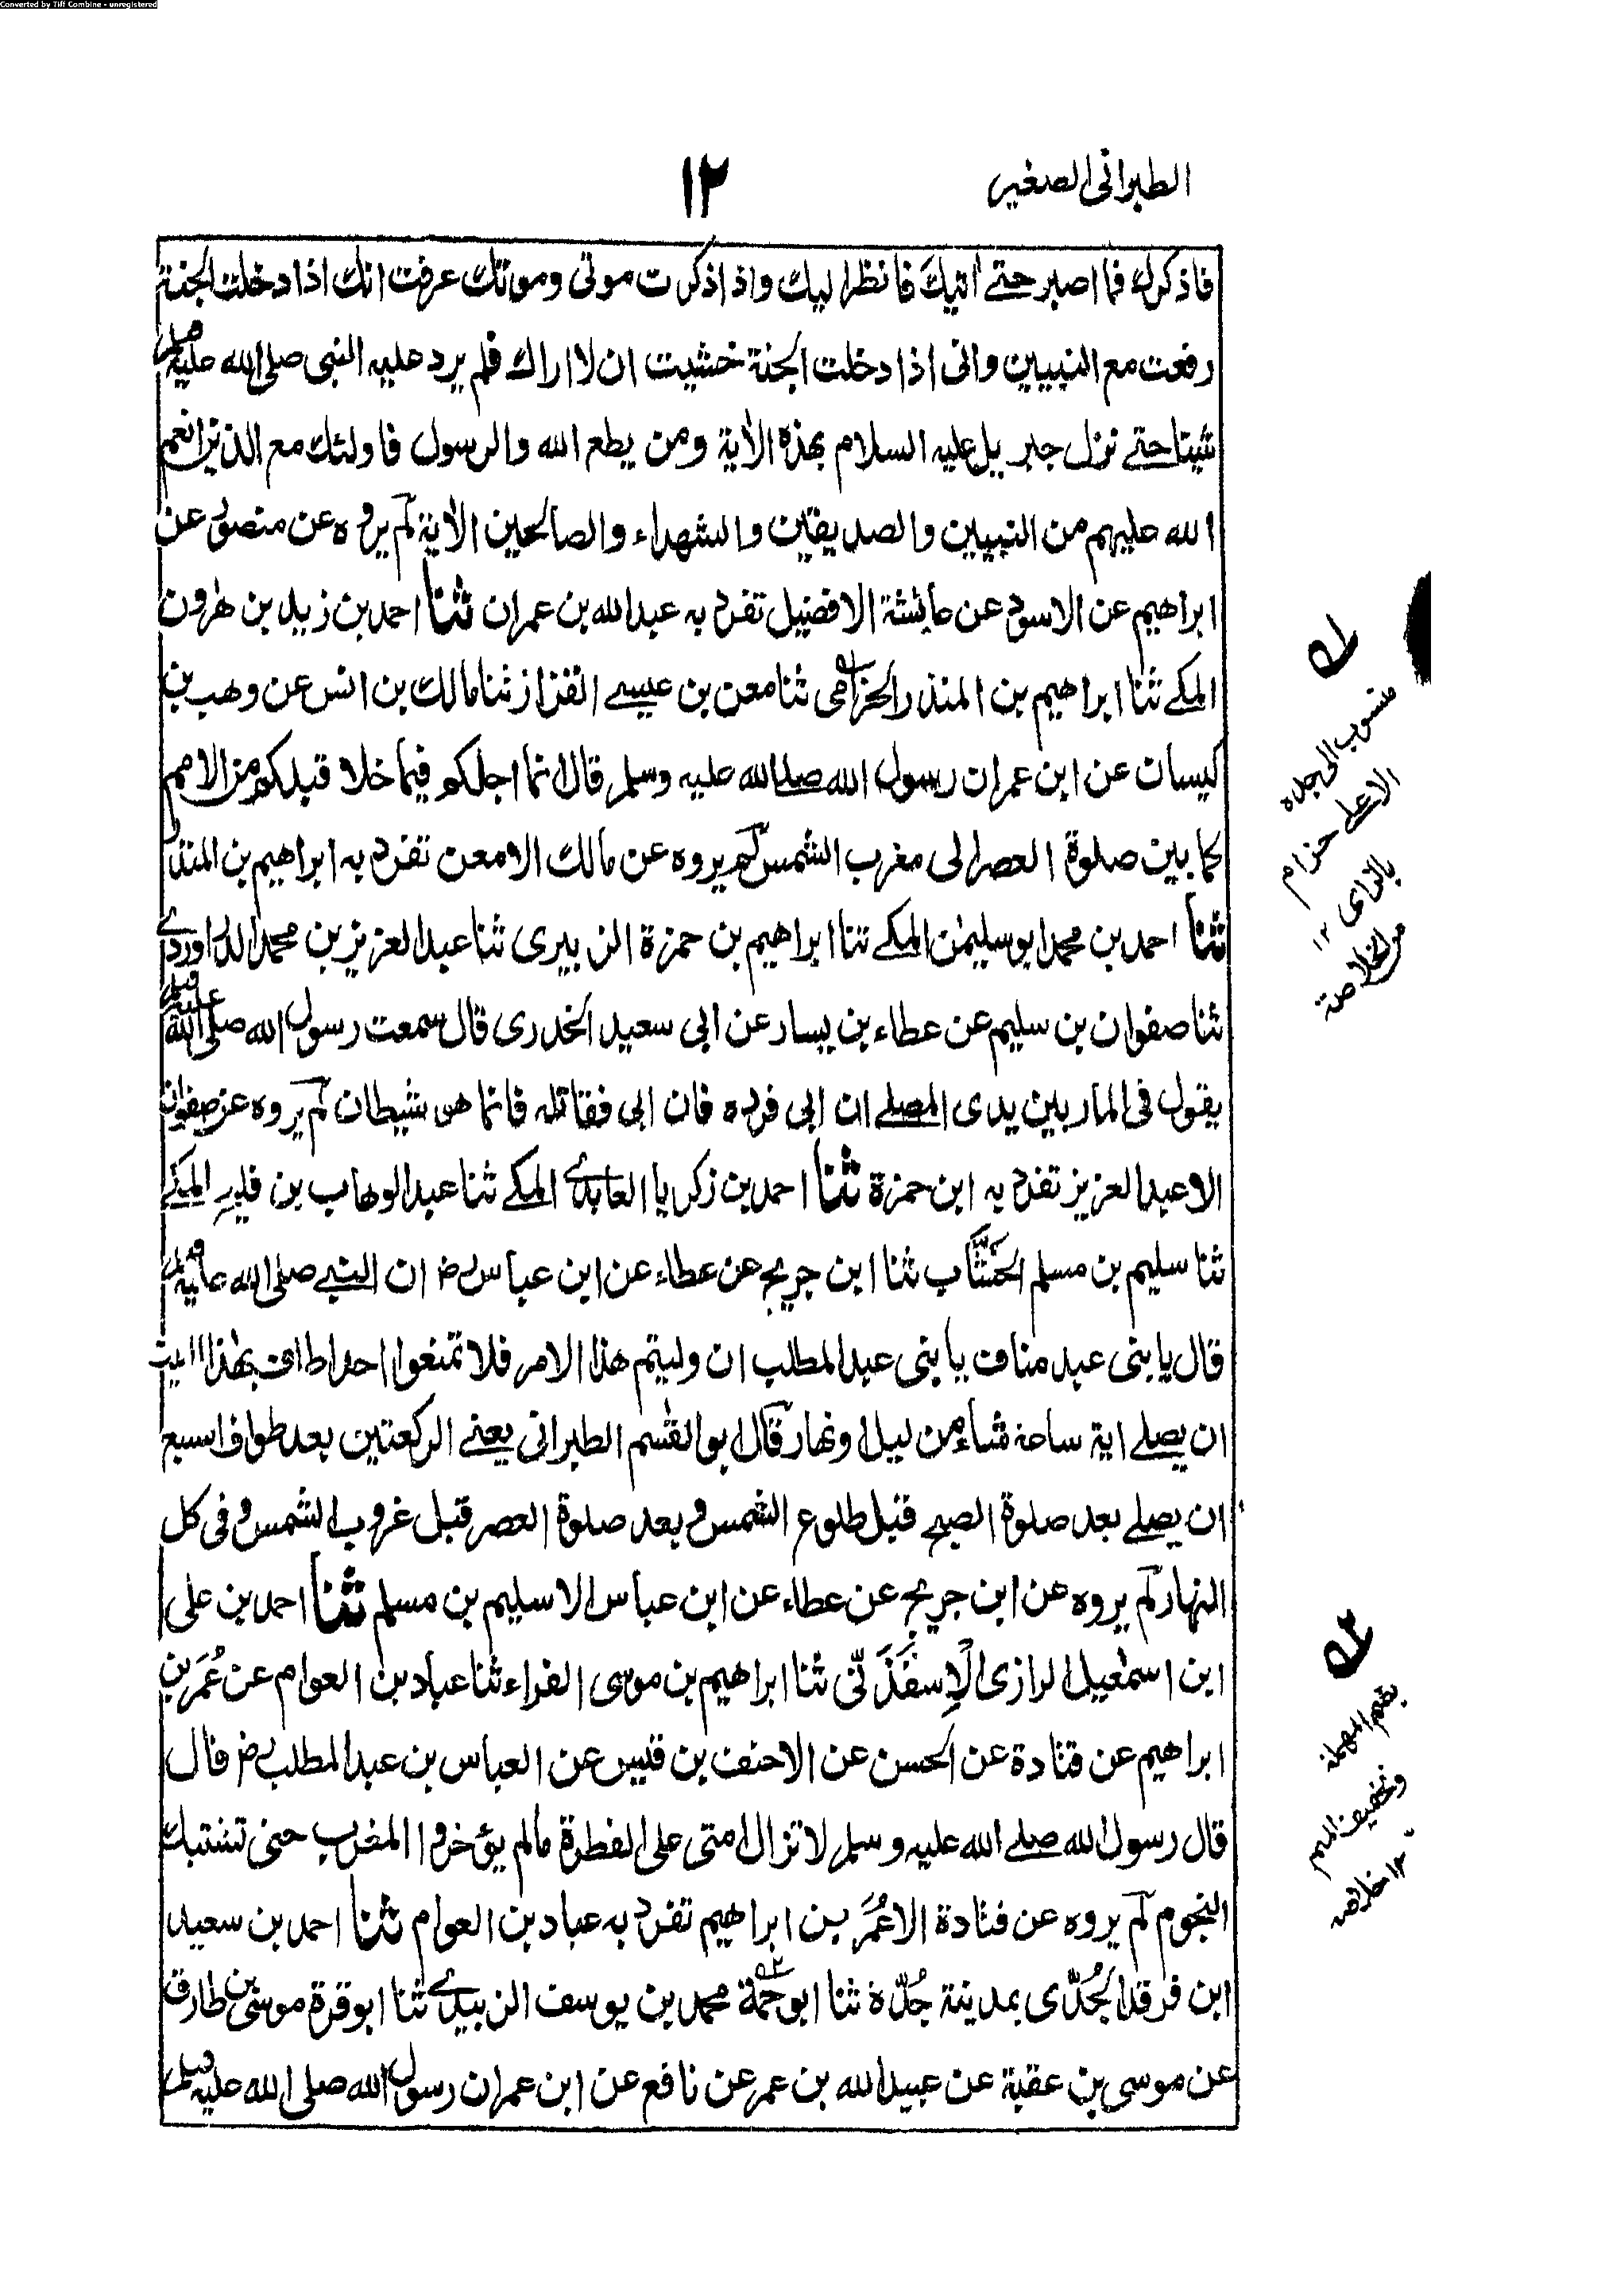 Converted by Tiff Combine - unregistered
الطبرانی الصغیر
١٢
فاذکرك فما اصبر حتے اٰتیكَ فانظر الیك واذا ذکرت موتی وموتك عرفت انك اذا دخلت الجنة
رفعت مع النبیین وانی اذا دخلت الجنة خشیت ان لا اراك فلم یرد علیه النبی صلی الله علیه وسلم
شیئا حتے نزل جبریل علیه السلام بهذه الاٰیة ومن یطع الله والرسول فاولئك مع الذین انعم
الله علیهم من النبیین والصدیقین والشهداء والصالحین الاٰیة لم یروه عن منصور عن
ابراهیم عن الاسود عن عائشة الا فضیل تفرد به عبدالله بن عمران ثنا احمد بن زید بن هٰرون
المکے ثنا ابراهیم بن المنذر الحزامی ثنا معن بن عیسے القزاز ثنا مالك بن انس عن وهب بن
کیسان عن ابن عمر ان رسول الله صلے الله علیه وسلم قال انما اجلکم فیما خلا قبلکم من الامم
کما بین صلوة العصر الی مغرب الشمس لم یروه عن مالك الا معن تفرد به ابراهیم بن المنذر
ثنا احمد بن محمد ابو سلیمٰن المکے ثنا ابراهیم بن حمزة الزبیری ثنا عبدالعزیز بن محمد الدراوردے
ثنا صفوان بن سلیم عن عطاء بن یسار عن ابی سعید الخدری قال سمعت رسول الله صلی الله علیه وسلم
یقول فی المار بین یدی المصلے ان ابی فرده فان ابی فقاتله فانما هو شیطان لم یروه عن صفوان
الا عبدالعزیز تفرد به ابن حمزة ثنا احمد بن زکریا العابدے المکے ثنا عبدالوهاب بن فلیح المکے
ثنا سلیم بن مسلم الخشَّاب ثنا ابن جریج عن عطاء عن ابن عباس رض ان النبے صلی الله علیه وسلم
قال یا بنی عبد مناف یا بنی عبدالمطلب ان ولیتم هذا الامر فلا تمنعوا احدا طاف بهٰذا البیت
ان یصلے ایة ساعة شاء من لیل او نهار قال ابو القٰسم الطبرانی یعنے الرکعتین بعد طواف السبع
ان یصلے بعد صلوة الصبح قبل طلوع الشمس و بعد صلوة العصر قبل غروب الشمس و فی کل
النهار لم یروه عن ابن جریج عن عطاء عن ابن عباس الا سلیم بن مسلم ثنا احمد بن علی
ابن اسمٰعیل الرازی الْاِسفَذَنّی ثنا ابراهیم بن موسی الفراء ثنا عباد بن العوام عن عُمَر بن
ابراهیم عن قتادة عن الحسن عن الاحنف بن قیس عن العباس بن عبدالمطلب رض قال
قال رسول الله صلے الله علیه وسلم لا تزال امتی علی الفطرة مالم یؤخروا المغرب حتی تشتبك
النجوم لم یروه عن قتادة الا عُمَر بن ابراهیم تفرد به عباد بن العوام ثنا احمد بن سعید
ابن فرقد الجُدّی بمدینة جُدّة ثنا ابو حمة محمد بن یوسف الزبیدے ثنا ابو قرة موسی بن طارق
عن موسی بن عقبة عن عبیدالله بن عمر عن نافع عن ابن عمر ان رسول الله صلی الله علیه وسلم
منسوب الی جده
الاعلے حزام
بالزای ١٢
من الخلاصة
بضم المهملة
وتخفیف المیم
١٢ خلاصه